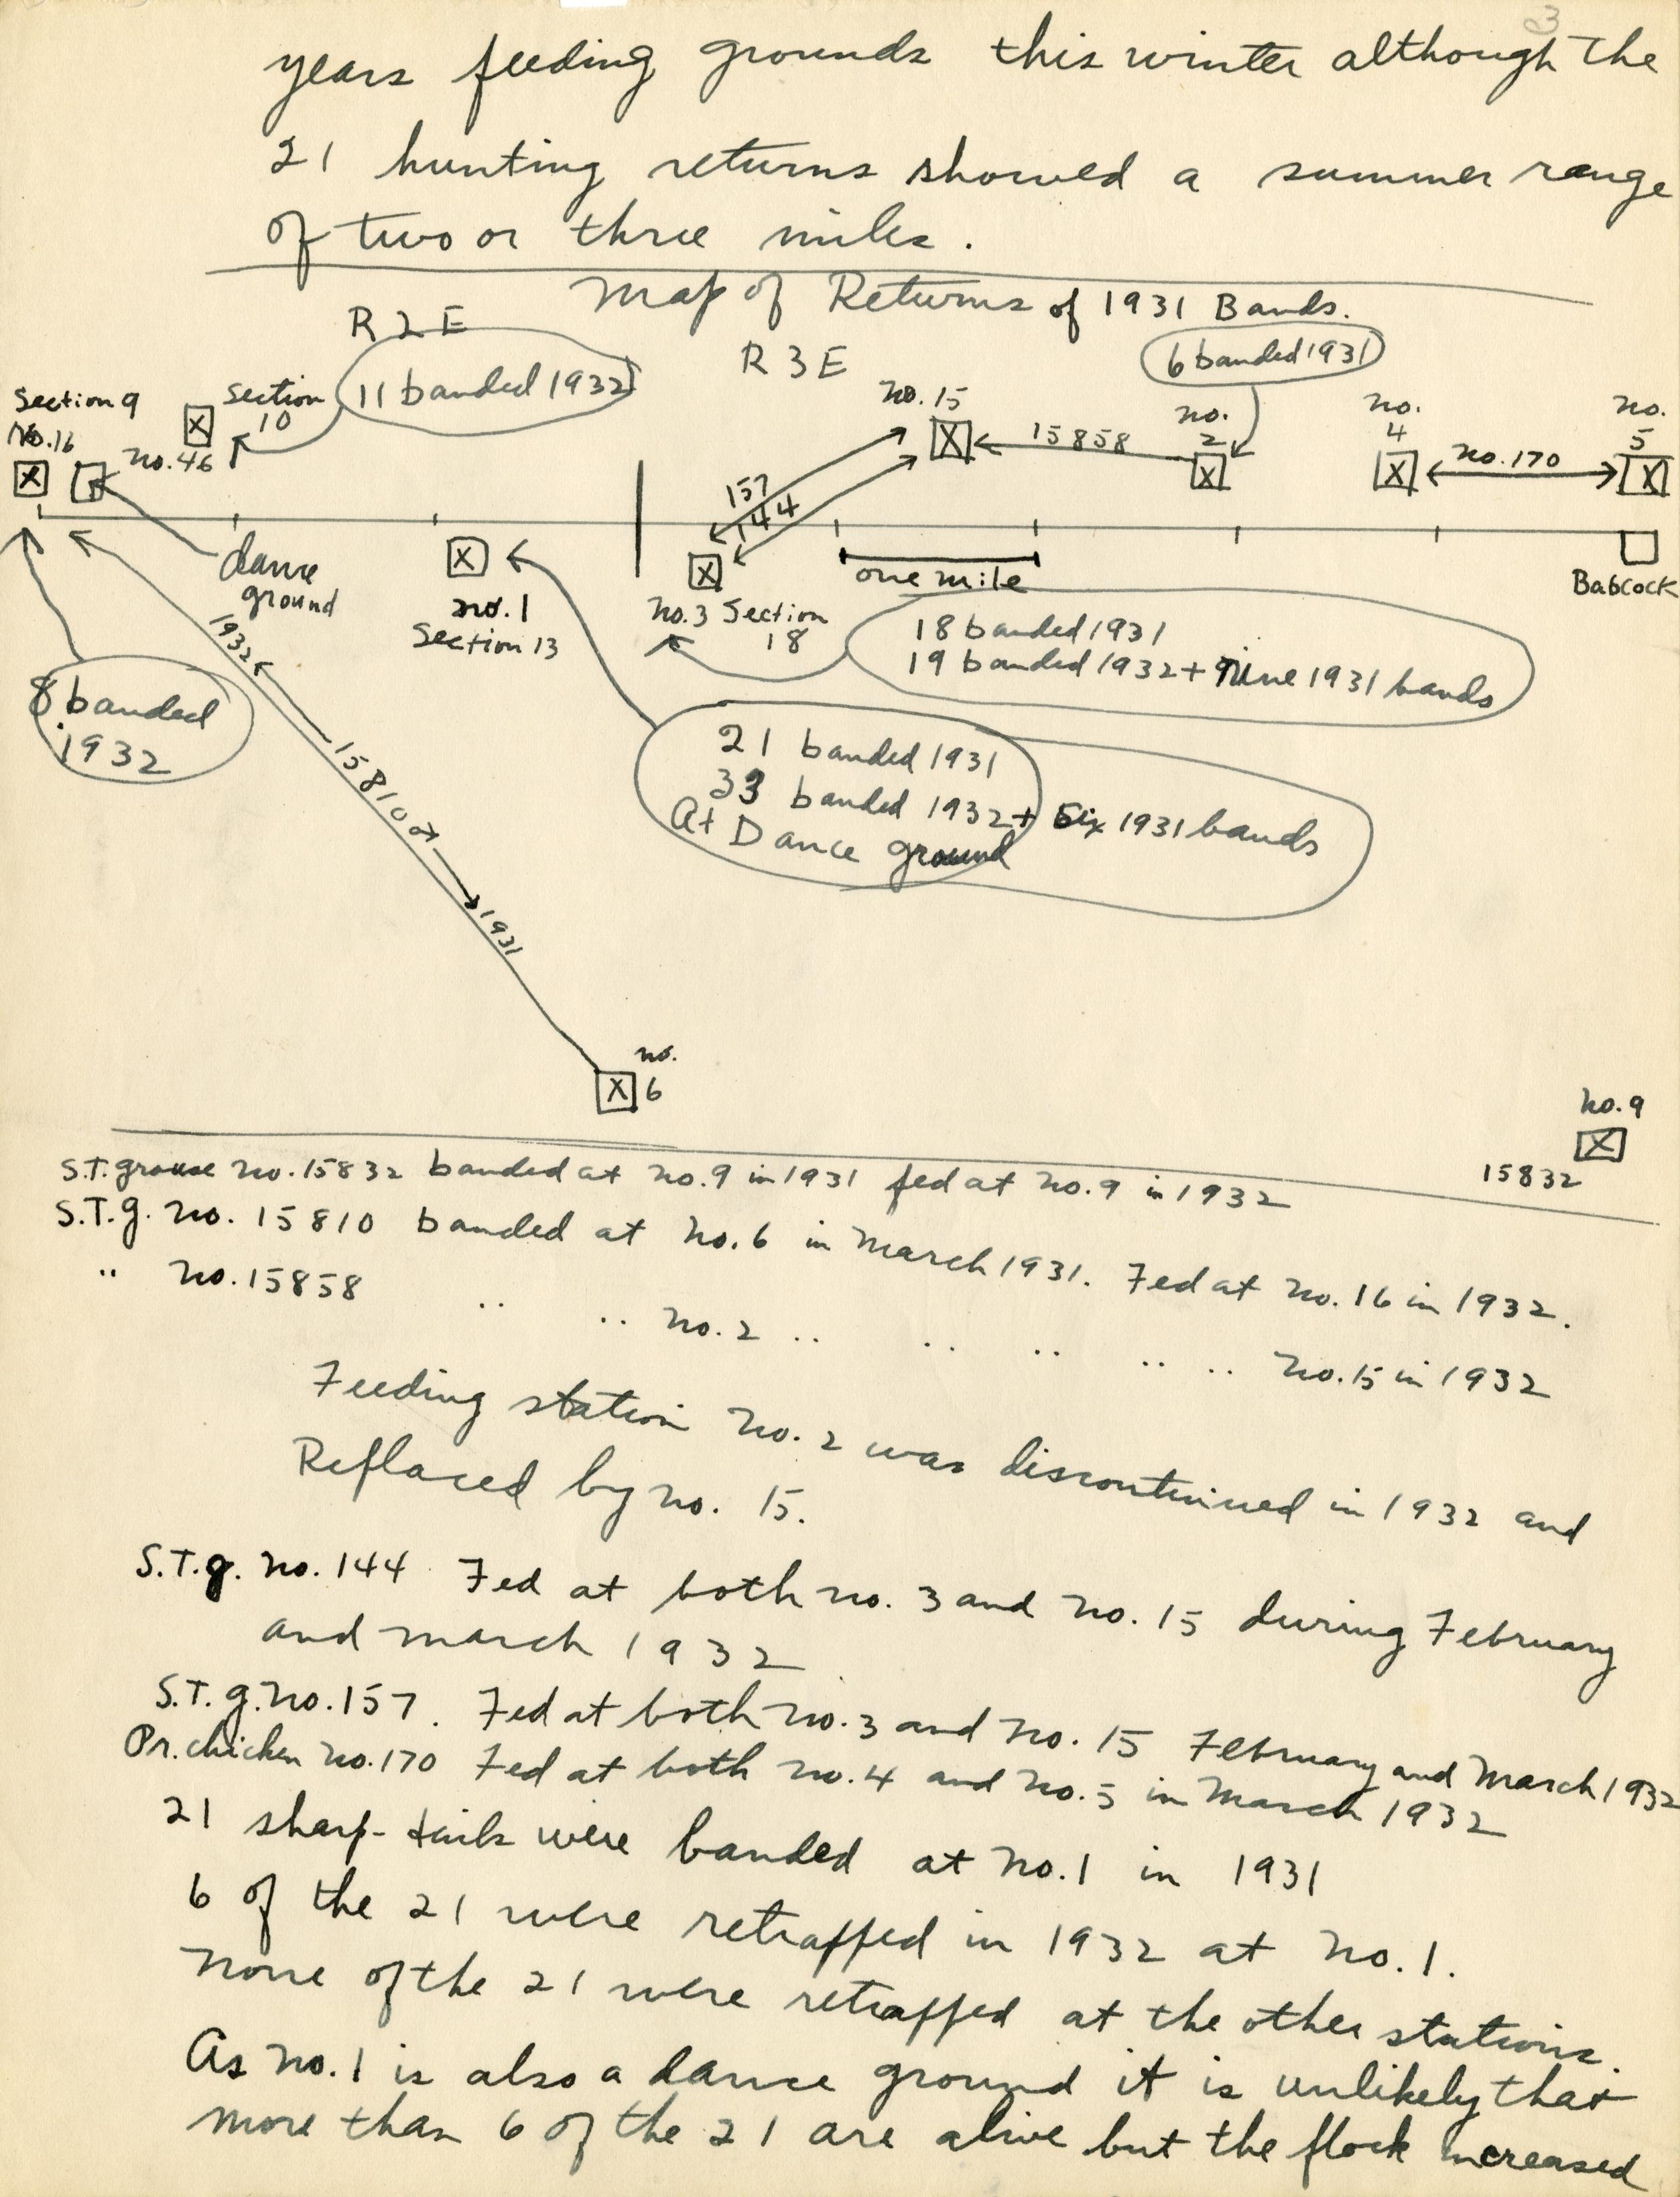 3
years feeding grounds this winter although the
21 hunting returns showed a summer range
of two or three miles.
Map of Returns of 1931 Bands.
R 2 E
R 3 E
11 banded 1932
6 banded 1931
Section 9
No. 16
Section
10
no. 46
no. 15
15858
no.
2
no.
4
no. 170
no.
5
157
144
dance
ground
no. 1
Section 13
no. 3 Section
18
one mile
Babcock
1932
8 banded
1932
18 banded 1931
19 banded 1932 + Nine 1931 bands
21 banded 1931
33 banded 1932 + Six 1931 bands
At Dance ground
15810
1931
no.
6
no. 9
15832
S.T. grouse no. 15832 banded at no. 9 in 1931 fed at no. 9 in 1932
S.T.g. no. 15810 banded at no. 6 in March 1931. Fed at no. 16 in 1932.
.. no. 15858 .. .. no. 2 .. .. .. .. .. no. 15 in 1932
Feeding station no. 2 was discontinued in 1932 and
Replaced by no. 15.
S.T.g. no. 144 Fed at both no. 3 and no. 15 during February
and march 1932
S.T.g. no. 157. Fed at both no. 3 and no. 15 February and March 1932
Pr. chicken no. 170 Fed at both no. 4 and no. 5 in March 1932
21 sharp-tails were banded at no. 1 in 1931
6 of the 21 were retrapped in 1932 at no. 1.
None of the 21 were retrapped at the other stations.
As no. 1 is also a dance ground it is unlikely that
more than 6 of the 21 are alive but the flock increased